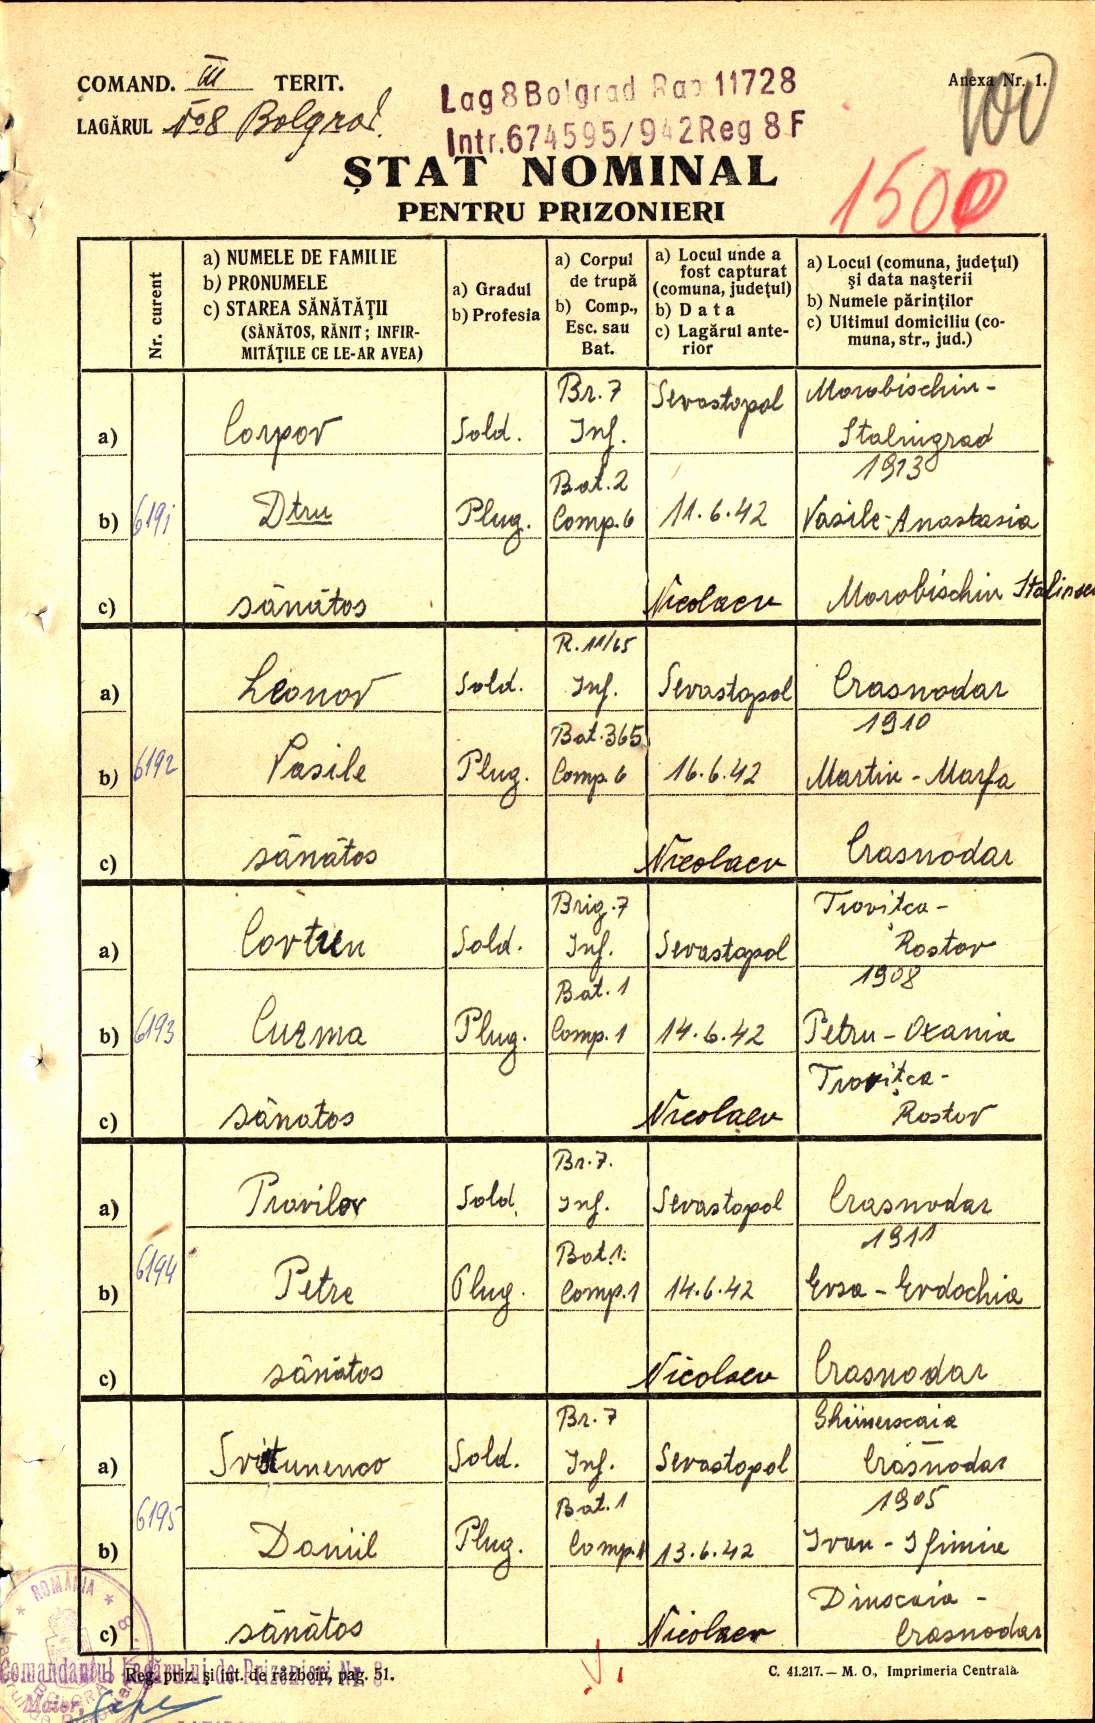 COMAND. III TERIT.
LAGĂRUL No 8 Bolgrad.
Lag 8 Bolgrad Rap 11728
Intr. 674595/942 Reg 8 F
Anexa Nr. 1.
100
1500
ȘTAT NOMINAL
PENTRU PRIZONIERI
Nr. curent
a) NUMELE DE FAMILIE
b) PRONUMELE
c) STAREA SĂNĂTĂȚII
(SĂNĂTOS, RĂNIT; INFIR-
MITĂȚILE CE LE-AR AVEA)
a) Gradul
b) Profesia
a) Corpul
de trupă
b) Comp.,
Esc. sau
Bat.
a) Locul unde a
fost capturat
(comuna, județul)
b) Data
c) Lagărul ante-
rior
a) Locul (comuna, județul)
și data nașterii
b) Numele părinților
c) Ultimul domiciliu (co-
muna, str., jud.)
6191
a) Corpov Sold. Br. 7 Inf. Sevastopol Morobischin - Stalingrad
1913
b) Dtru Plug. Bat. 2 Comp. 6 11.6.42 Vasile-Anastasia
c) sănătos Nicolaev Morobischin
6192
a) Leonov Sold. R. 11/65 Inf. Sevastopol Crasnodar
1910
b) Vasile Plug. Bat. 365 Comp. 6 16.6.42 Martin - Marfa
c) sănătos Nicolaev Crasnodar
6193
a) Covtun Sold. Brig. 7 Inf. Sevastopol Trovitca - Rostov
1908
b) Cuzma Plug. Bat. 1 Comp. 1 14.6.42 Petru - Oxania
c) sănatos Nicolaev Trovitca - Rostov
6194
a) Provilov Sold. Br. 7. Inf. Sevastopol Crasnodar
1911
b) Petre Plug. Bat. 1. Comp. 1 14.6.42 Evsa - Evdochia
c) sănătos Nicolaev Crasnodar
6195
a) Svitunenco Sold. Br. 7 Inf. Sevastopol Ghinerscaia Crasnodar
1905
b) Daniil Plug. Bat. 1 Comp. 1 13.6.42 Ivan - Ifimia
c) sănătos Nicolaev Dinscaia - Crasnodar
ROMÂNIA
Comandantul Lagărului de Prizonieri Nr. 8
Maior,
Reg. priz. și int. de războiu, pag. 51.
C. 41.217. — M. O., Imprimeria Centrală